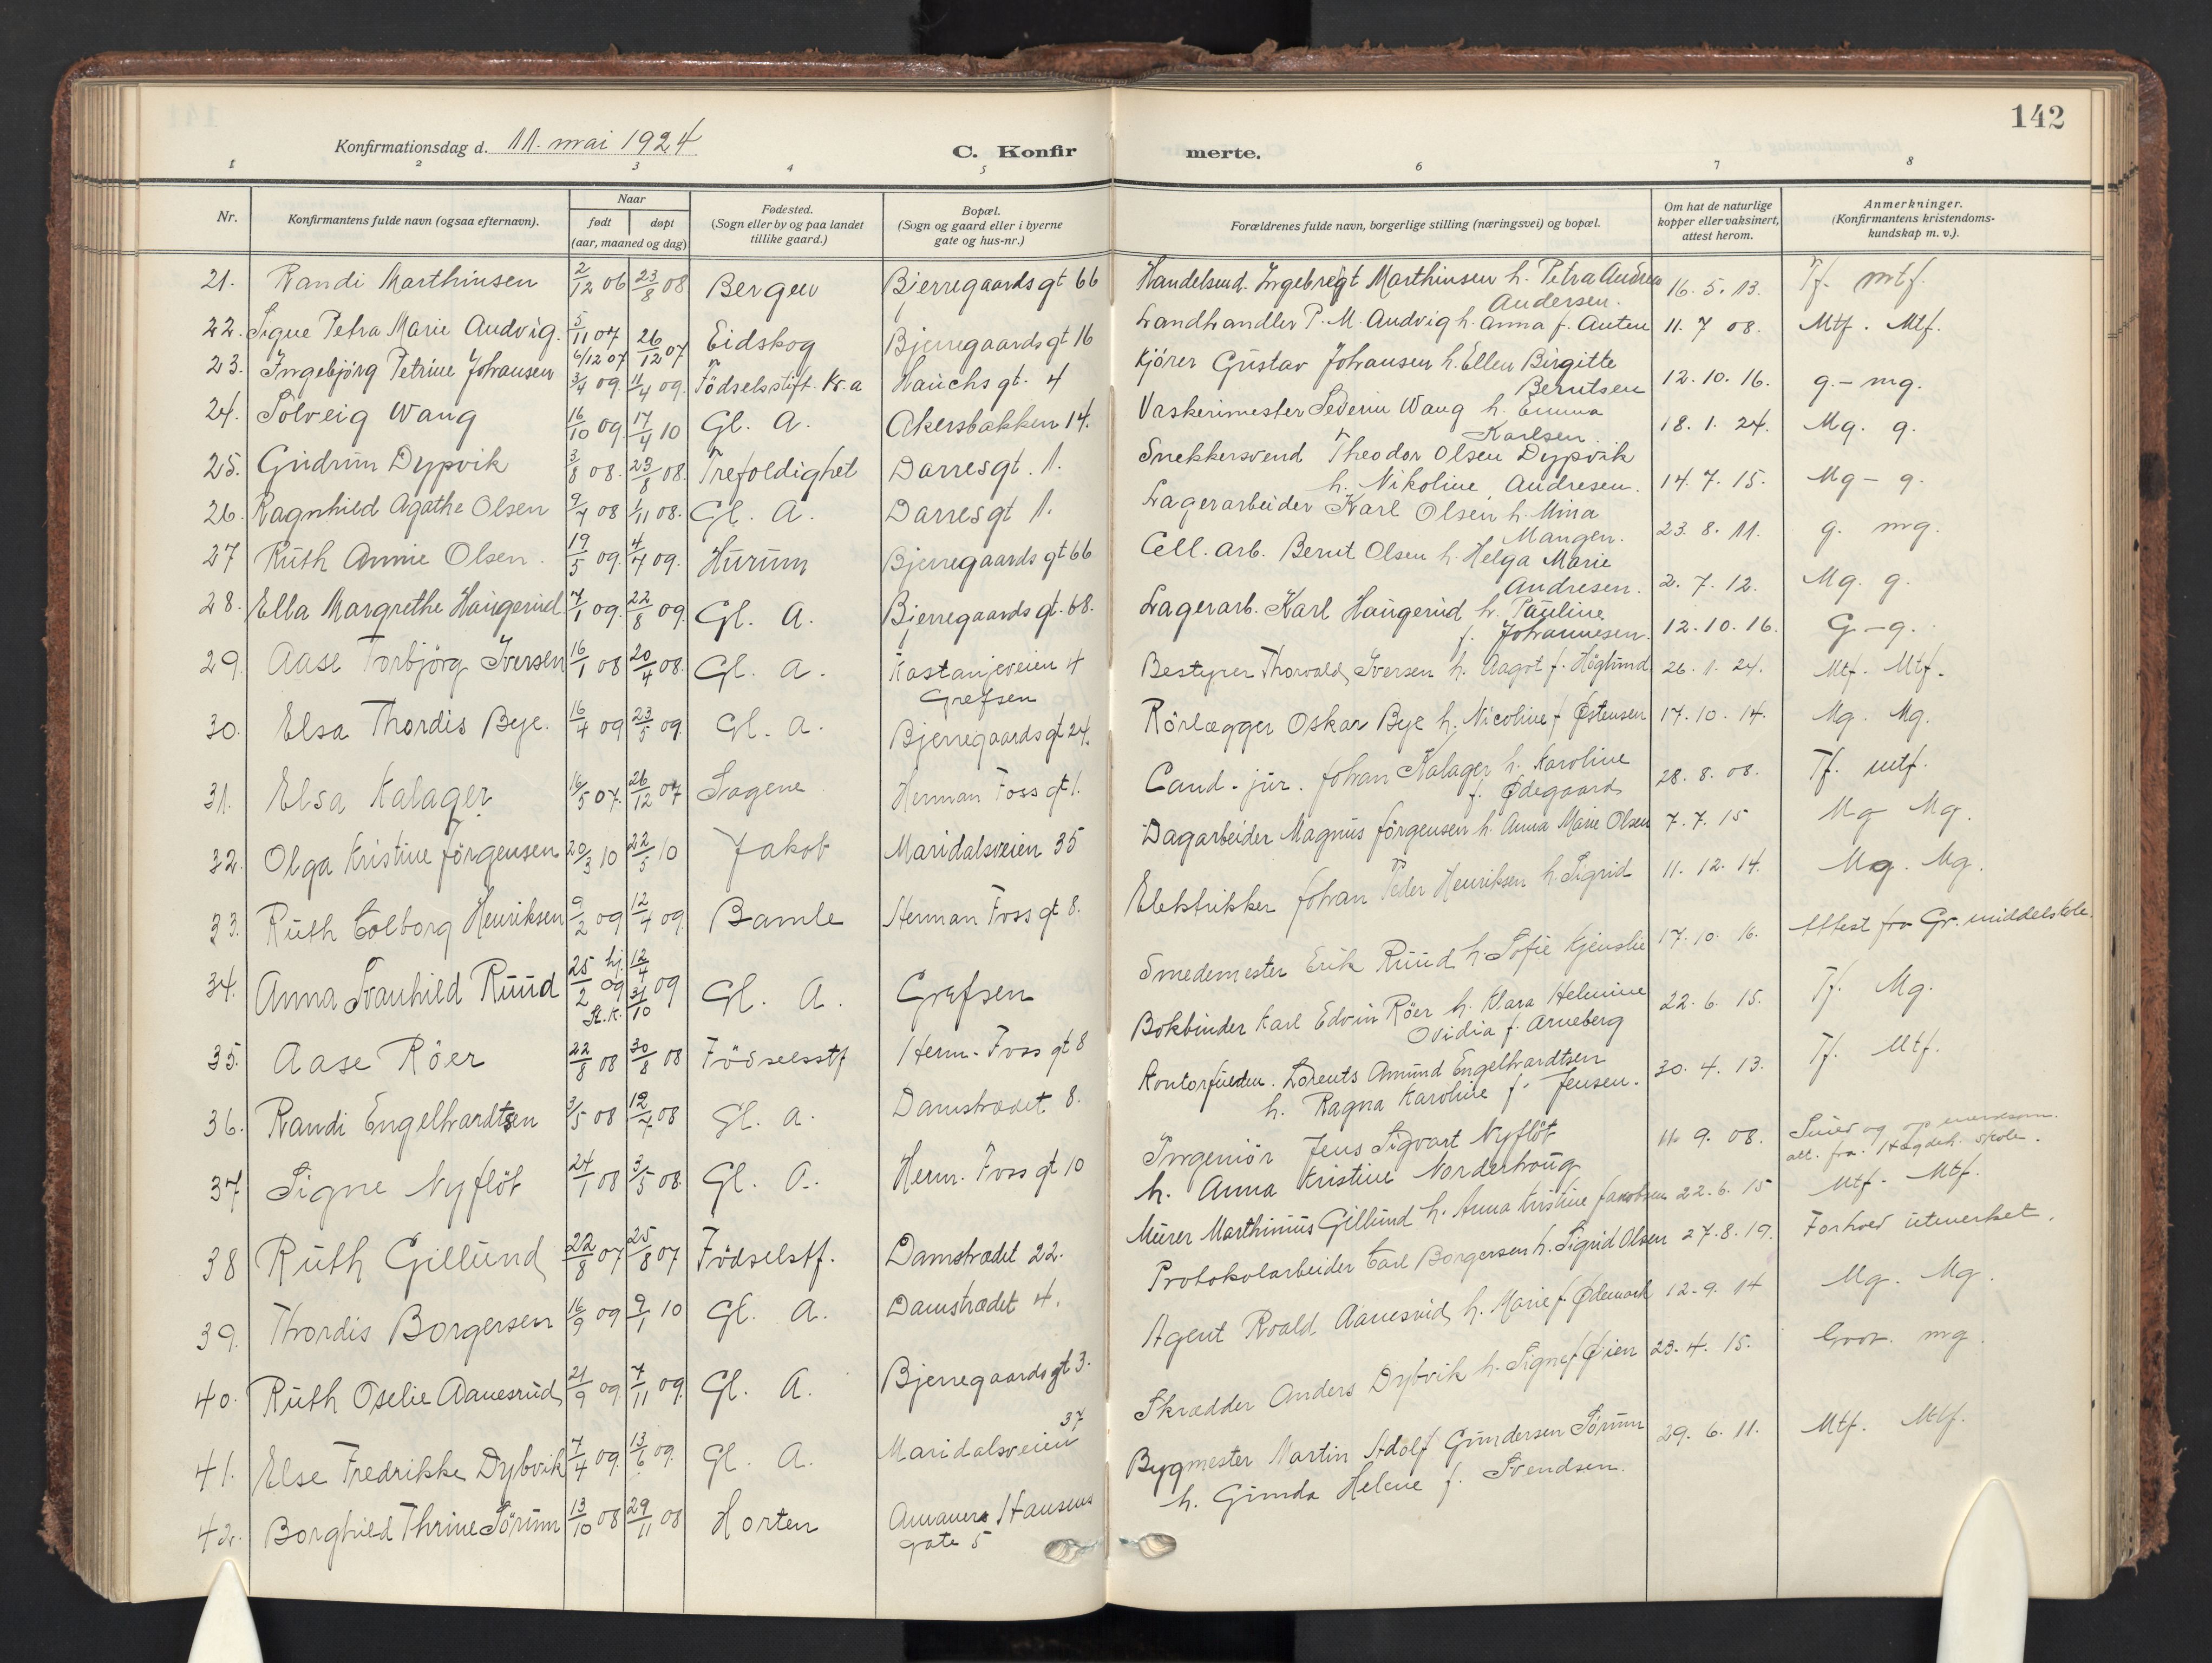 142
Konfirmationsdag d. 11. mai 1924
C. Konfirmerte.
1 2 3 4 5 6 7 8
Nr. | Konfirmantens fulde navn (ogsaa efternavn). | Naar født døpt (aar, maaned og dag) | Fødested. (Sogn eller by og paa landet tillike gaard.) | Bopæl. (Sogn og gaard eller i byerne gate og hus-nr.) | Forældrenes fulde navn, borgerlige stilling (næringsvei) og bopæl. | Om hat de naturlige kopper eller vaksinert, attest herom. | Anmerkninger. (Konfirmantens kristendoms-kundskap m. v.).
21. Randi Marthinsen 2/12 06 23/8 08 Bergen Bjerregaards gt 66 Handelsmd. Ingebregt Marthinsen h. Petra Andrea Andersen. 16. 5. 13. Tf. mtf.
22. Signe Petra Marie Audvig. 5/11 07 26/12 07 Eidskog Bjerregaards gt 16 Landhandler P. M. Audvig h. Anna f. Auten 11. 7 08. Mtf. Mtf.
23. Ingebjörg Petrine Johansen 6/12 07 3/4 09. 11/4 09. Födselsstift. Kr.a Hauchs gt. 4 Kjörer Gustav Johansen h. Ellen Birgitte Berntsen 12. 10. 16. g. - mg.
24. Solveig Wang 16/10 09 17/4 10 Gl. A. Akersbakken 14. Vaskerimester Severin Wang h. Emma Karlsen. 18. 1. 24. Mg. g.
25. Gudrun Dypvik 3/8 08. 23/8 08. Trefoldighet Darresgt. 1. Snekkersvend Theodor Olsen Dypvik h. Nikoline Andresen. 14. 7. 15. Mg - g.
26. Ragnhild Agathe Olsen 9/4 08 1/11 08. Gl. A. Darresgt 1. Lagerarbeider Karl Olsen h. Mina Mangen. 23. 8. 11. g. mg.
27 Ruth Annie Olsen. 19/5 09. 4/7 09. Hurum Bjerregaards gt 66 Cell. arb. Bernt Olsen h. Helga Marie Andresen. 2. 7. 12. Mg. g.
28. Ella Margrethe Haugerud 7/1 09. 22/8 09. Gl. A. Bjerregaards gt. 68. Lagerarb. Karl Haugerud h. Pauline f. Johannesen. 12. 10. 16. G - g.
29. Aase Torbjörg Iversen 16/1 08 20/4 08. Gl. A. Kastanjeveien 4 Grefsen Bestyrer Thorvald Iversen h. Aagot f. Höglund 26. 1. 24. Mtf. Mtf.
30. Elsa Thordis Bye. 16/4 09 23/5 09. Gl. A. Bjerregaards gt 24. Rörlægger Oskar Bye h. Nicoline f. Østensen 17. 10. 14. Mg. Mg.
31. Elsa Kalager 16/5 07. 26/12 07 Sagene Herman Foss gt 1. Cand. jur. Johan Kalager h. Karoline f. Ødegaard 28. 8. 08. Tf. mtf.
32. Olga Kristine Jörgensen 20/3 10 22/5 10 Jakob Maridalsveien 35 Dagarbeider Magnus Jörgensen h. Anna Marie Olsen 7. 7. 15 Mg Mg.
33. Ruth Solborg Henriksen 9/2 09 12/4 09. Bamle Herman Foss gt 8. Elektrikker Johan Peder Henriksen h. Sigrid 11. 12. 14. Mg. Mg.
34. Anna Svanhild Ruud 25/2 09 hj. 12/4 St. K. 31/10 09 Gl. A. Grefsen Smedemester Erik Ruud h. Sofie Kjenslie 17. 10. 16. Attest fra Gr. middelskole.
35. Aase Röer 22/8 08 30/8 08 Födselsstf Herm. Foss gt 8 Bokbinder Karl Edvin Röer h. Klara Helmine Ovidia f. Arneberg 22. 6. 15. Tf. Mg.
36. Randi Engelhardtsen 3/5 08 12/7 08 Gl. A. Damstrædet 8. Kontorfuldm. Lorents Amund Engelhardtsen h. Ragna Karoline f. Jensen. 30. 4. 13. Tf. Mtf.
37 Signe Nyflöt 24/1 08 3/5 08. Gl. A. Herm. Foss gt 10 Ingeniör Jens Sigvart Nyflöt h. Anna Kristine Norderhaug 11. 9. 08. og att. fra skole.
38 Ruth Gillund 22/8 07 25/8 07 Födselstf. Damstrædet 22. Murer Marthinius Gillund h. Anna Kristine Jakobsen 22. 6. 15 Mtf. Mtf.
39. Thordis Borgersen 16/9 09 9/1 10 Gl. A. Damstrædet 4. Protokolarbeider Carl Borgersen h. Sigrid Olsen 27. 8. 19. Forhver utmerket.
40. Ruth Oselie Aanesrud 21/9 09. 7/11 09. Gl. A. Bjerregaards gt 3. Agent Roald Aanesrud h. Marie f. Ødemark 12. 9. 14 Mg. Mg.
41. Else Fredrikke Dybvik 7/4 09. 13/6 09. Gl. A. Maridalsveien 37 Skrædder Anders Dybvik h. Signe f. Øien 23. 4. 15. mg.
42. Borghild Thrine Sörum 13/10 08 29/11 08 Horten Hansens gate 5 Bygmester Martin Adolf Gundersen Sörum h. Gunda Helene f. Svendsen. 29. 6. 11. Mtf. Mtf.